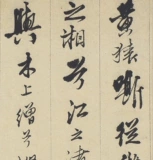 黃猿嘶從
之湘兮江之渚
與木上繒兮